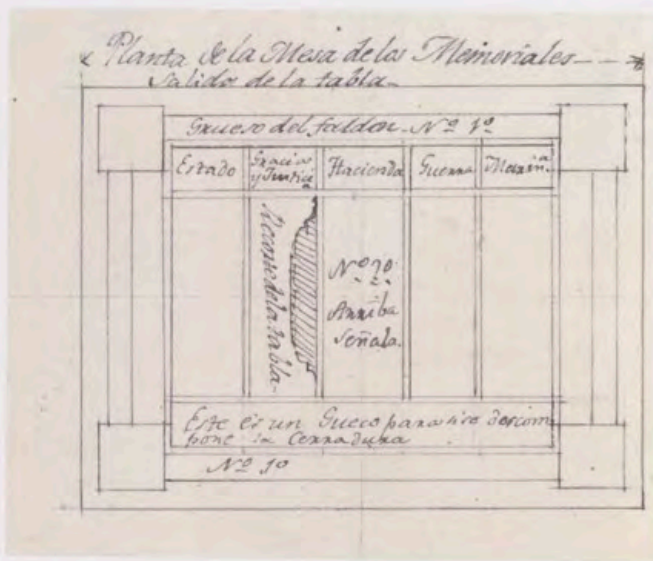 Planta de la Mesa de los Memoriales
Salido de la tabla
Grueso del faldon. Nº 1º
Estado
Gracia
y Justicia
Hacienda
Guerra
Marinª
Recorte de la tabla
Nº 10
Arriba
Señala.
Este es un Gueco para si se descom
pone la Cerradura
Nº 1º